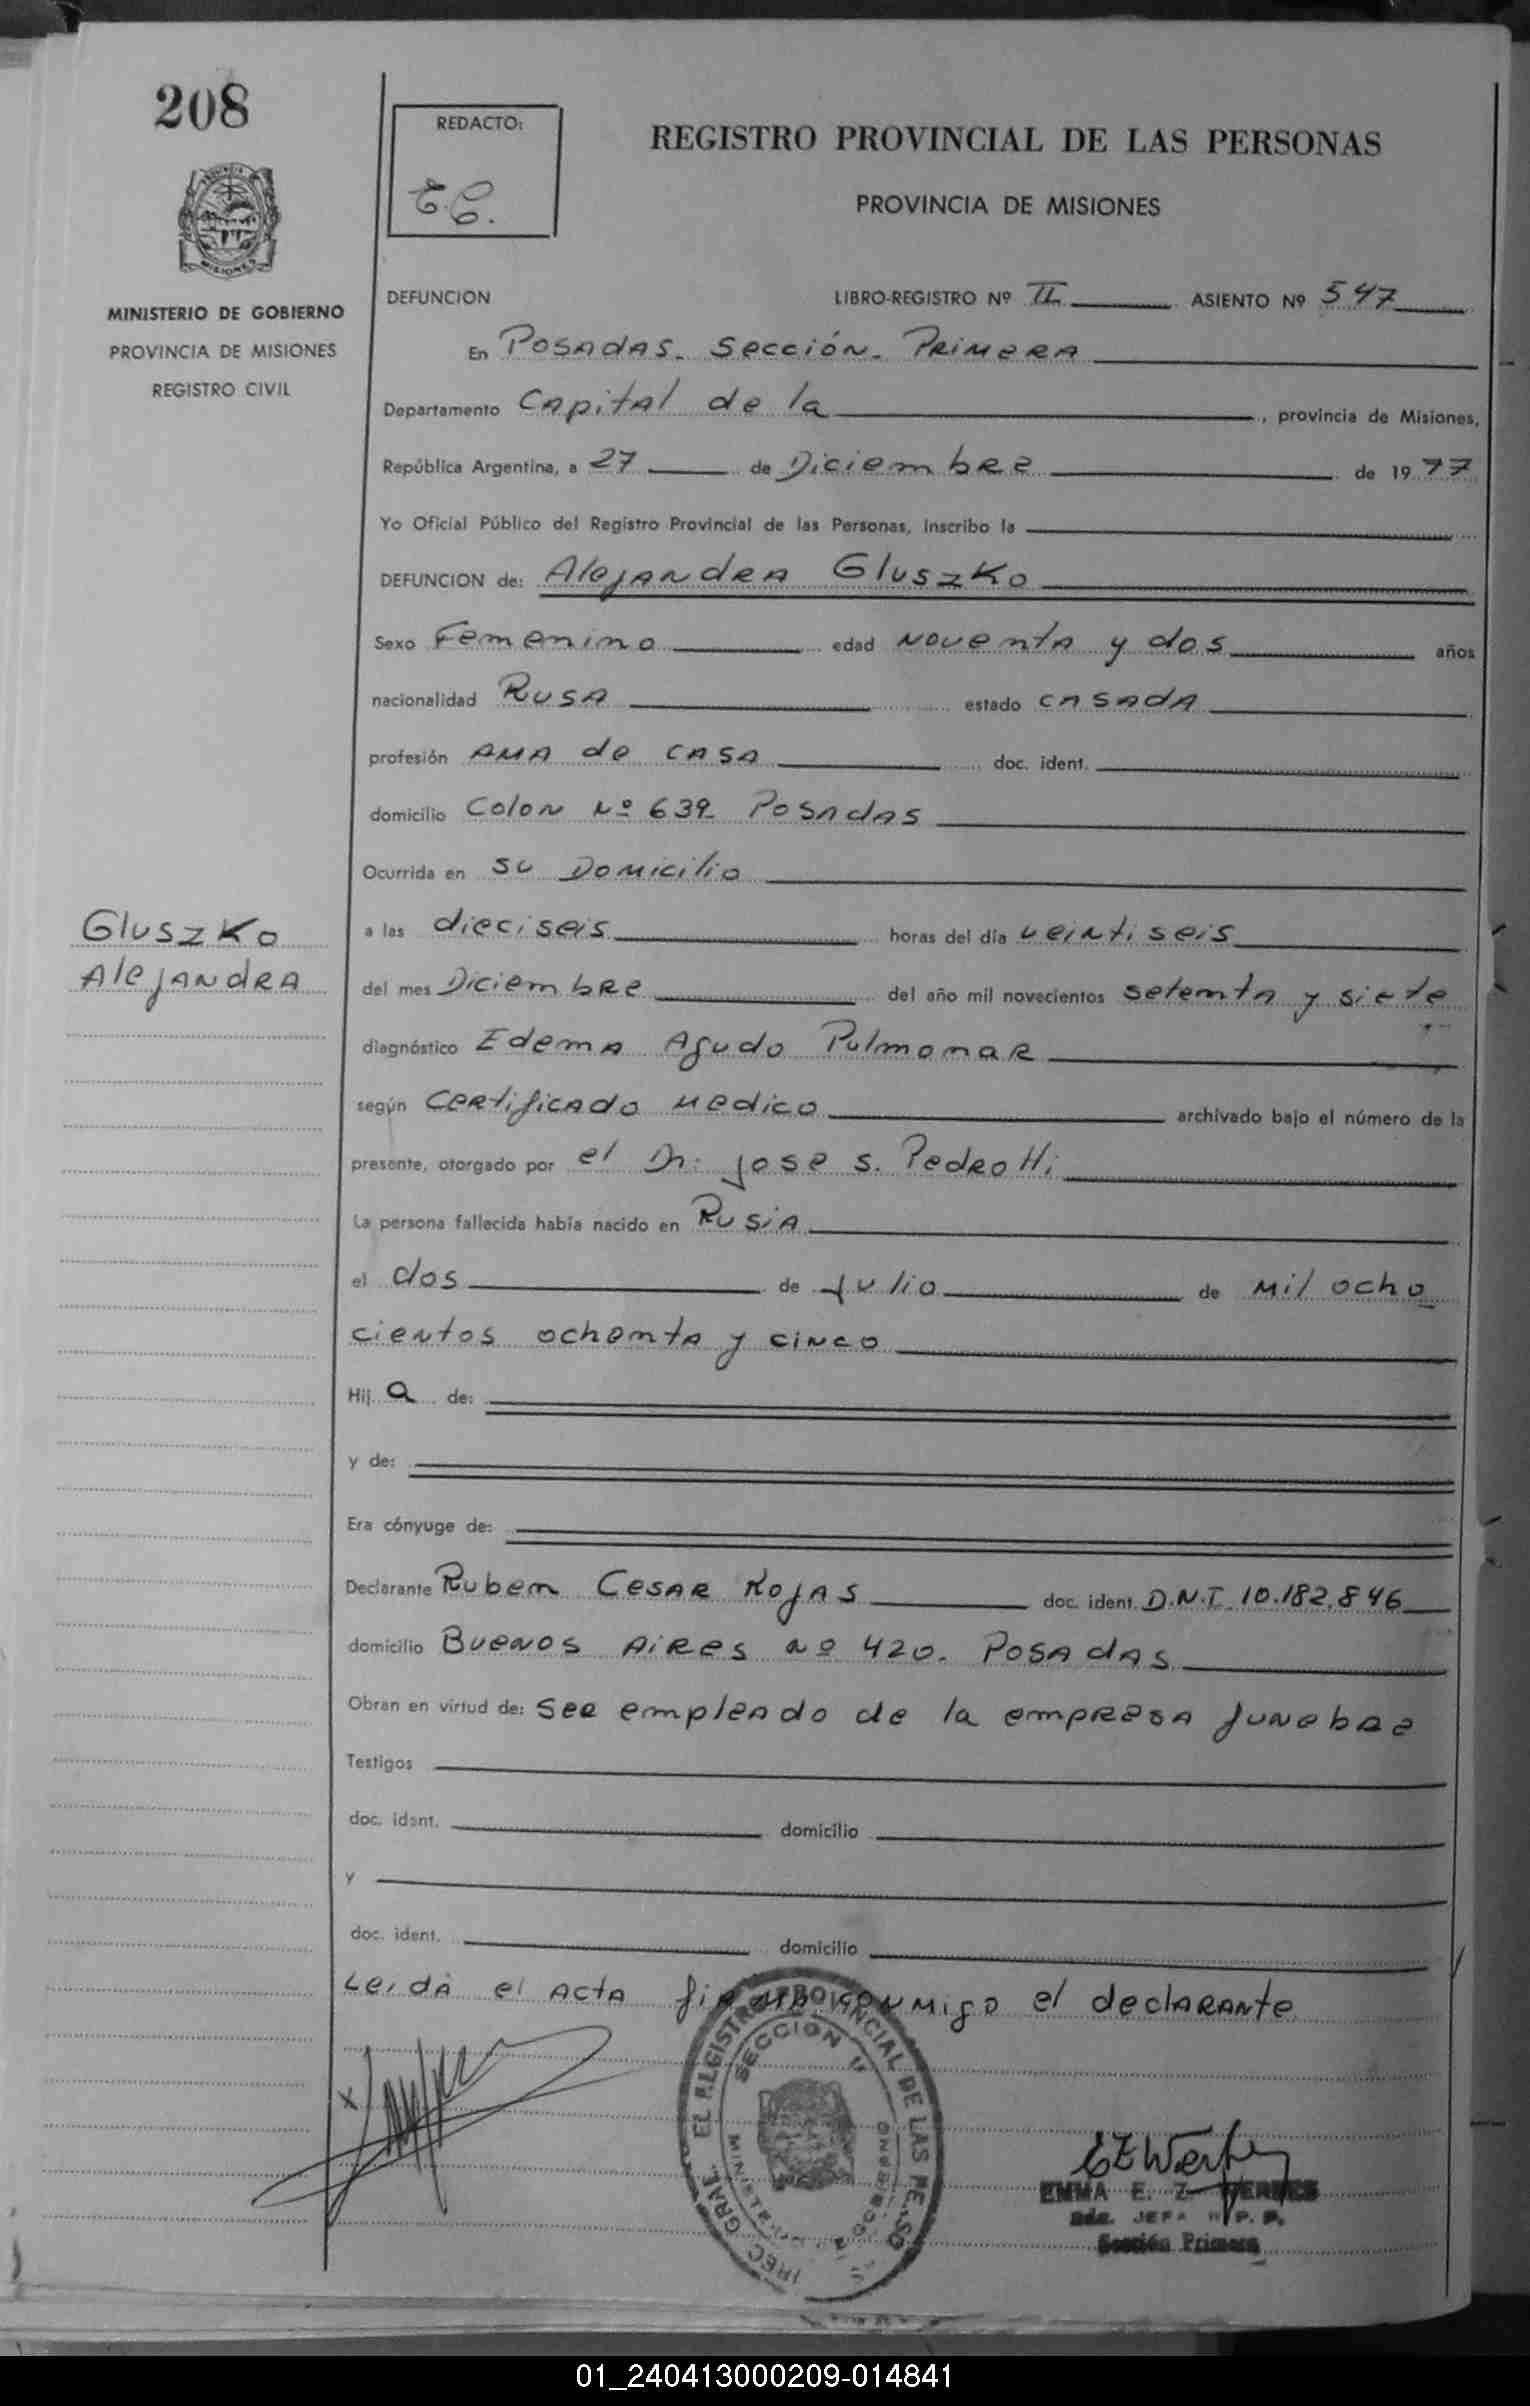 208
REDACTO:
E.C.
REGISTRO PROVINCIAL DE LAS PERSONAS
PROVINCIA DE MISIONES
MISIONES
MINISTERIO DE GOBIERNO
PROVINCIA DE MISIONES
REGISTRO CIVIL
DEFUNCION LIBRO-REGISTRO Nº II ASIENTO Nº 547
En Posadas. Sección. Primera
Departamento Capital de la, provincia de Misiones,
República Argentina, a 27 de Diciembre de 1977
Yo Oficial Público del Registro Provincial de las Personas, inscribo la
DEFUNCION de: Alejandra Gluszko
Sexo Femenino edad noventa y dos años
nacionalidad Rusa estado casada
profesión ama de casa doc. ident.
domicilio Colon Nº 639 Posadas
Ocurrida en su Domicilio
Gluszko
Alejandra
a las dieciseis horas del día veintiseis
del mes Diciembre del año mil novecientos setenta y siete
diagnóstico Edema Agudo Pulmonar
según certificado medico archivado bajo el número de la
presente, otorgado por el Dr. Jose S. Pedrotti
La persona fallecida había nacido en Rusia
el dos de Julio de mil ocho
cientos ochenta y cinco
Hij a de:
y de:
Era cónyuge de:
Declarante Ruben Cesar Rojas doc. ident. D.N.I. 10.182.846
domicilio Buenos Aires nº 420. Posadas
Obran en virtud de: ser empleado de la empresa funebre
Testigos
doc. ident. domicilio
y
doc. ident. domicilio
Leida el acta firma conmigo el declarante
X
SECCION
EMMA E. Z.
JEFA R. P. P.
Sección Primera
01_240413000209-014841